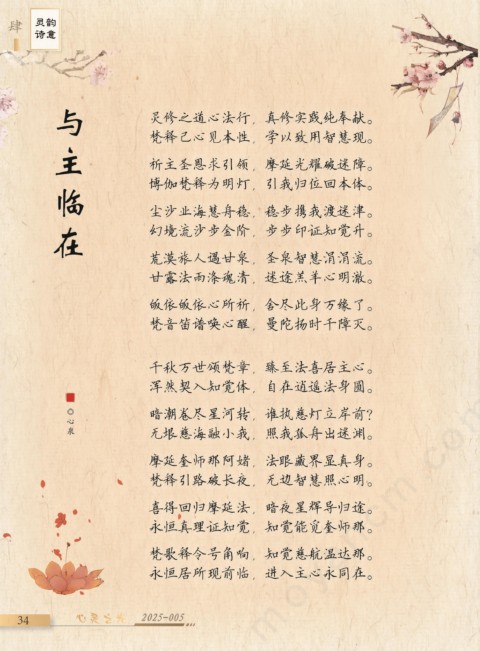 肆
灵韵
诗意
与主临在
◎心泉
灵修之道心法行，真修实践纯奉献。
梵释己心见本性，学以致用智慧现。
祈主圣恩求引领，摩延光耀破迷障。
博伽梵释为明灯，引我归位回本体。
尘沙业海慧舟稳，稳步携我渡迷津。
幻境流沙步金阶，步步印证知觉升。
荒漠旅人遇甘泉，圣泉智慧涓涓流。
甘露法雨涤魂清，迷途羔羊心明澈。
皈依皈依心所祈，舍尽此身万缘了。
梵音笛谱唤心醒，曼陀扬时千障灭。
千秋万世颂梵章，臻至法喜居主心。
浑然契入知觉体，自在逍遥法身圆。
暗潮卷尽星河转，谁执慈灯立岸前?
无垠慈海融小我，照我孤舟出迷渊。
摩延奎师那阿婼，法眼藏界显真身。
梵释引路破长夜，无边智慧照心明。
喜得回归摩延法，暗夜星辉导归途。
永恒真理证知觉，知觉能觅奎师那。
梵歌释令号角响，知觉慈航温达那。
永恒居所现前临，进入主心永同在。
34
2025-005